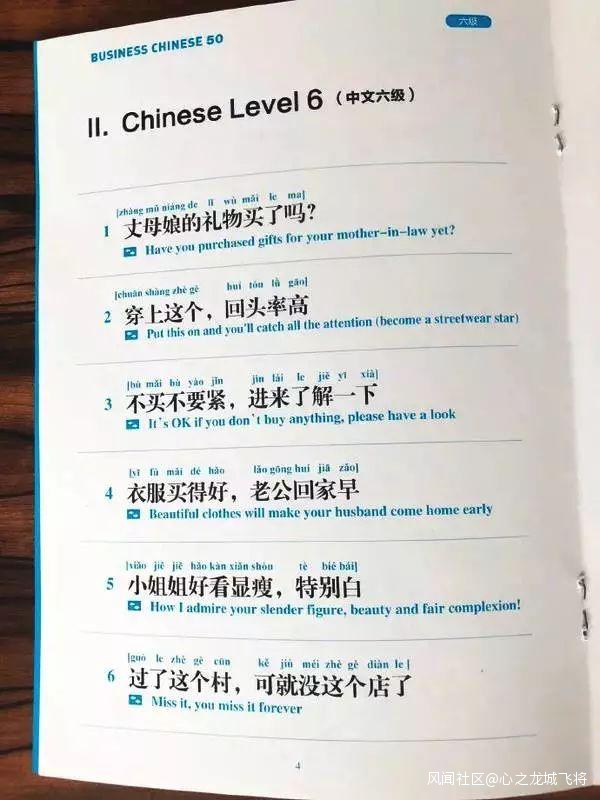 BUSINESS CHINESE 50
六级
II. Chinese Level 6（中文六级）
[zhàng mǔ niáng de lǐ wù mǎi le ma]
1 丈母娘的礼物买了吗？
Have you purchased gifts for your mother-in-law yet?
[chuān shàng zhè gè huí tóu lǜ gāo]
2 穿上这个，回头率高
Put this on and you'll catch all the attention (become a streetwear star)
[bù mǎi bù yào jǐn jìn lái le jiě yī xià]
3 不买不要紧，进来了解一下
It's OK if you don't buy anything, please have a look
[yī fú mǎi dé hǎo lǎo gōng huí jiā zǎo]
4 衣服买得好，老公回家早
Beautiful clothes will make your husband come home early
[xiǎo jiě jiě hǎo kàn xiǎn shòu tè bié bái]
5 小姐姐好看显瘦，特别白
How I admire your slender figure, beauty and fair complexion!
[guò le zhè gè cūn kě jiù méi zhè gè diàn le]
6 过了这个村，可就没这个店了
Miss it, you miss it forever
4
风闻社区@心之龙城飞将